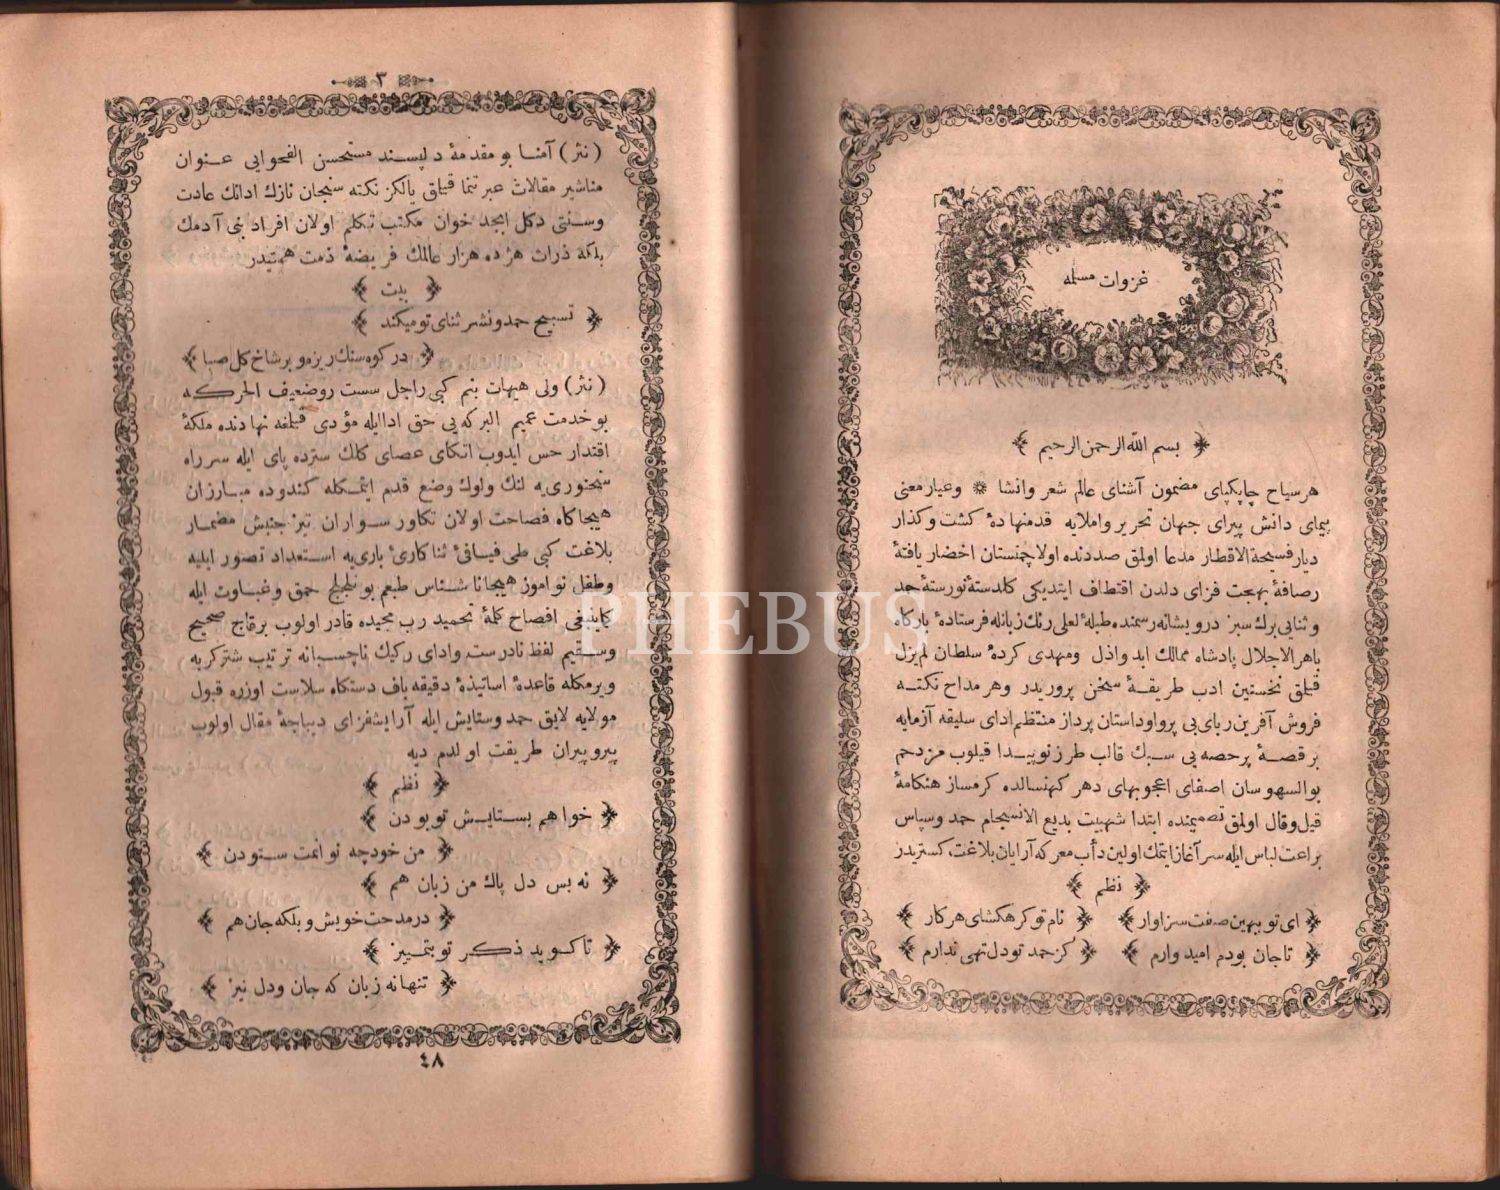 غزوات مسلمه
بسم الله الرحمن الرحيم
هر سياح چاپكپای مضمون آشنای عالم شعر وانشا ۞ وعيار معنی
پيمای دانش پيرای جهان تحرير واملايه قدمنهادۀ كشت وكذار
ديار فسيحة الاقطار مدعا اولمق صددنده اولا چمنستان اخضار يافتۀ
رصافۀ بهجت فزای دلدن اقتطاف ايتديكی كلدستۀ نورستۀ حمد
وثنايی برك سبز درويشانه رسمنده طبلۀ لعلی رنك زبانله فرستادۀ باركاه
باهر الاجلال پادشاه ممالك ابد واذل ومهدی كردۀ سلطان لم يزل
قيلمق نخستين ادب طريقۀ سخن پروريدر وهر مداح نكته
فروش آفرين ربای بی پروا وداستان پرداز منتظم ادای سليقه آزمايه
بر قصۀ پر حصه يی سبك قالب طرز نو پيدا قيلوب مزدحم
بوالهوسان اصغای اعجوبهای دهر كهنسالده كرمساز هنكامۀ
قيل وقال اولمق تصميمنده ابتدا شهبيت بديع الانسجام حمد وسپاس
براعت لباس ايله سر آغاز ايتمك اولين دأب معركه آرايان بلاغت كستريدر
نظم
ای تو ببهين صفت سزاوار نام تو كرهكشای هر كار
تا جان بودم اميدوارم كز حمد تو دل تهی ندارم
٣
(نثر) آمنا بو مقدمۀ دلپسند مستحسن الفحوايی عنوان
مناشير مقالات عبرتنما قيلمق يالكز نكته سنجان نازك ادانك عادت
وسنتی دكل ابجد خوان مكتب تكلم اولان افراد بنی آدمك
بلكه ذرات هژده هزار عالمك فريضۀ ذمت همتيدر
بيت
تسبيح حمد ونشر ثنای تو ميكند
در كوه سنك ريزه و بر شاخ كل صبا
(نثر) ولی هيهات بنم كبی راجل سست رو ضعيف الحركه
بو خدمت عميم البركه يی حق ادا ايله مؤدی قيلمغه نهادنده ملكۀ
اقتدار حس ايدوب اتكای عصای كلك سترده پای ايله سر راه
سخنوری يه لنك ولوك وضع قدم ايتمكله كندوده مبارزان
هيجاكاه فصاحت اولان تكاور سواران تيز جنبش مضمار
بلاغت كبی طی فيافئ ثناكارئ باری يه استعداد تصور ايليه
وطفل نو آموز هيجا ناشناس طبعم بو لجلج حمق وغباوت ايله
كاينبغی افصاح كلمۀ تحميد رب مجيده قادر اولوب برقاج صحيح
وسقيم لفظ نادرست وادای ركيك ناچسبانه ترتيب شتركربه
ويرمكله قاعدۀ اساتيذۀ دقيقه باف دستكاه سلاست اوزره قبول
مولايه لايق حمد وستايش ايله آرايشفزای ديباجۀ مقال اولوب
پيرو پيران طريقت اولدم ديه
نظم
خواهم بستايش تو بودن
من خود چه توانمت ستودن
نه بس دل پاك من زبان هم
در مدحت خويش و بلكه جان هم
تا كويد ذكر تو بتمييز
تنها نه زبان كه جان ودل نيز
٤٨
PHEBUS